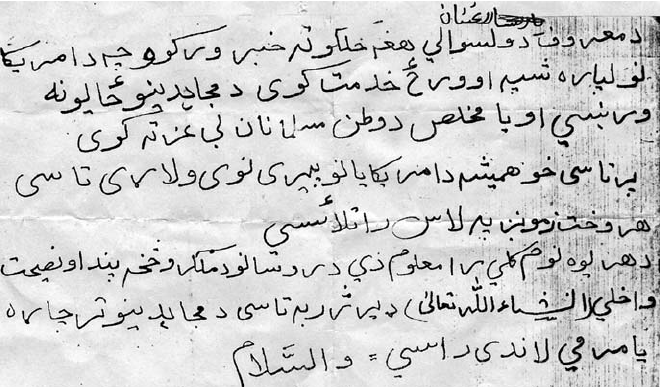 د معروف د ولسوالي هغه خلکو ته خبر ورکوو چه د امریکا
لولپاره شپه او ورځ خدمت کوی د مجاهدینو ځایونه
ورښیي او با مخلص د وطن مسلمانان بی عزته کوی
پر تاسی خو همیشه د امریکایانو بیری نوی ولاړی تاسی
هر وخت زمونږ په لاس راتلائسی
د هر یوه نوم کلي برا معلوم دي در وستانو د منکر وڅخه پند او نصیحت
واخلي (انشاءالله تعالی) ډیر ژر به تاسی د مجاهدینو تر چاړه
یا مرمي لاندی راسي = والسَّلام